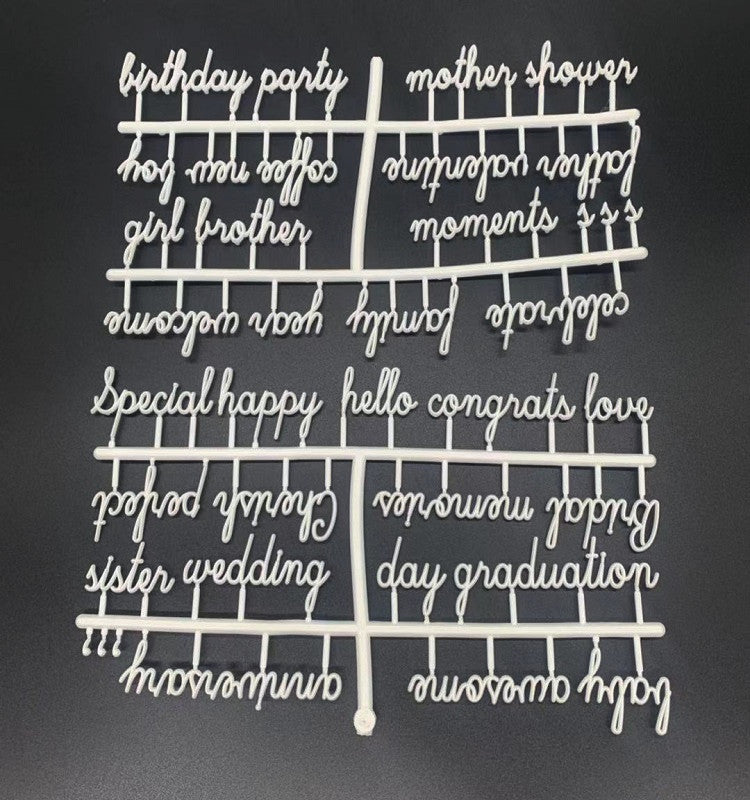 birthday party mother shower
coffee new boy father valentine
girl brother moments s s s
welcome year family celebrate
Special happy hello congrats love
perfect Cherish memories Bridal
sister wedding day graduation
anniversary awesome baby